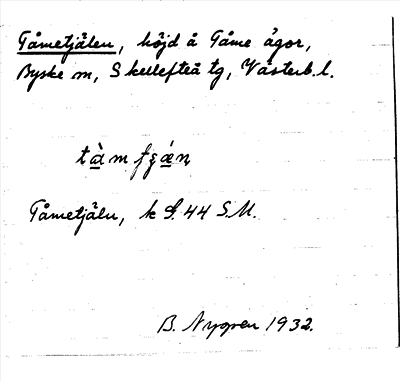 Tåmetjälen, höjd å Tåme ägor,
Byske sn, Skellefteå tg, Västerb. l.
Tåmetjäln, k S. 44 S.M.
B. Nygren 1932.